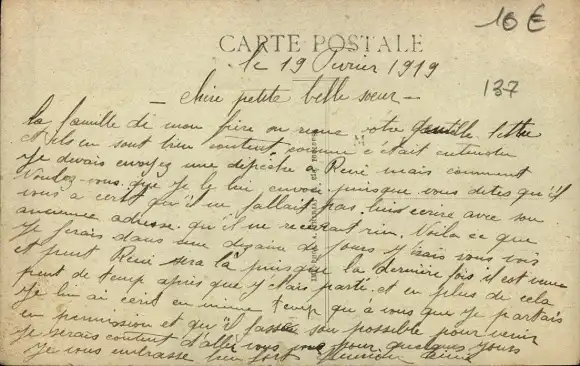 10 €
CARTE POSTALE
le 19 Février 1919
137
- chère petite belle sœur -
la famille de mon frère on reçue votre gentille lettre
et ils en sont bien content. comme c'était entendu
je devais envoyez une dépêche a René mais comment
voulez-vous que je le lui envoi puisque vous dites qu'il
vous a écrit qu'il ne fallait pas lui écrire avec son
ancienne adresse. qu'il ne recevrait rien. Voila ce que
je ferais dans une dizaine de jours j'irais vous voir
et peut René sera là puisque la dernière fois il est venu
peut de temp après que j'y étais parti. et en plus de cela
je lui ai écrit en même temp qu'à vous que je partais
en permission et qu'il fasse son possible pour venir
je serais content d'aller vous voir pour quelques jours
je vous embrasse bien fort